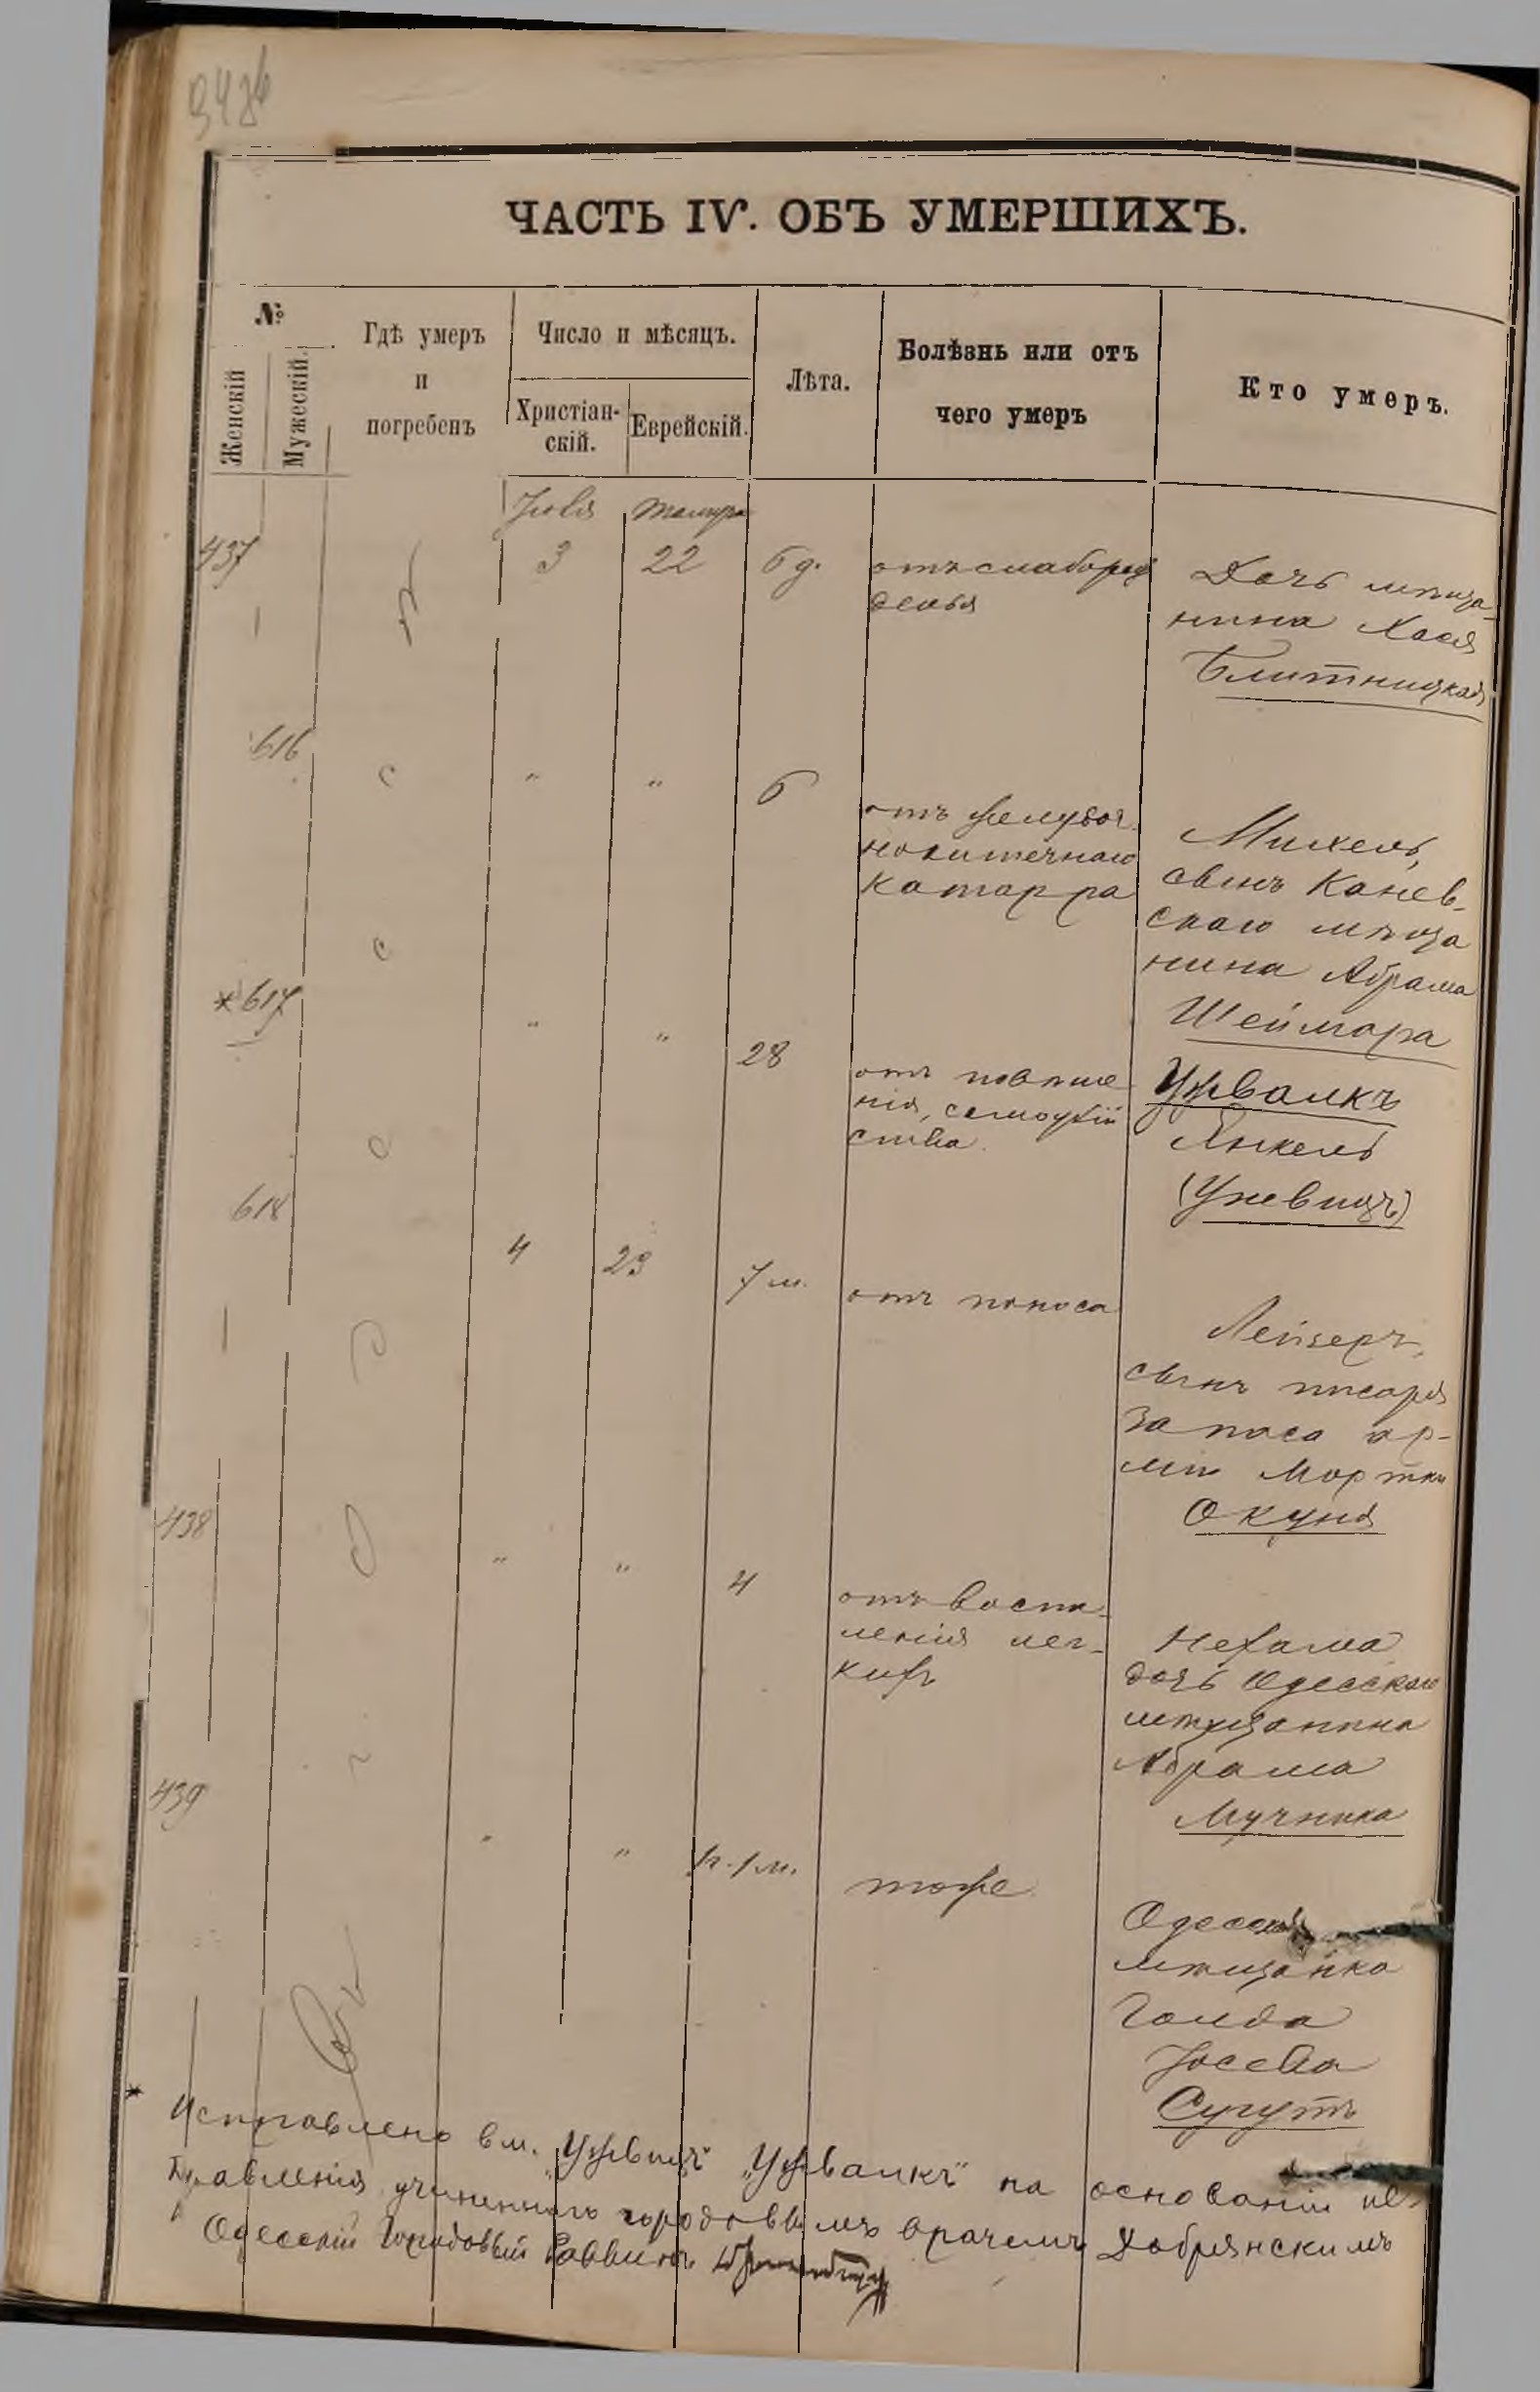 ЧАСТЬ IV. ОБЪ УМЕРШИХЪ.
№
Женскій
Мужескій.
Гдѣ умеръ
и
погребенъ
Число и мѣсяцъ.
Христіан-
скій.
Еврейскій.
Лѣта.
Болѣзнь или отъ
чего умеръ
Кто умеръ.
Іюля
437
3
22
6 д.
отъ слаборож
денья
Дочь мѣща-
нина Хася
Блитницкая
616
"
"
6
отъ желудоч-
нокишечнаго
катарра
Михель,
сынъ Канев-
скаго мѣща
нина Абрама
Шеймара
* 617
"
"
28
отъ повѣше
нія, самоубій
ства.
Ужвалкъ
Янкель
(Ужевицъ)
618
4
23
7 м.
отъ поноса
Лейзеръ,
сынъ писаря
запаса ар-
міи Мортки
Окуня
438
"
"
4
отъ воспа-
ленія лег-
кихъ
Нехама
дочь Одесскаго
мѣщанина
Абрама
Мучника
439
"
"
1 г. 1 м.
тоже
Одесская
мѣщанка
Голда
Іосева
Сугутъ
* Исправлено вм. „Ужвицъ" „Ужвалкъ" на основаніи ис-
правленія учиненнаго городовымъ врачемъ Добрянскимъ
Одесскій Городовый Раввинъ